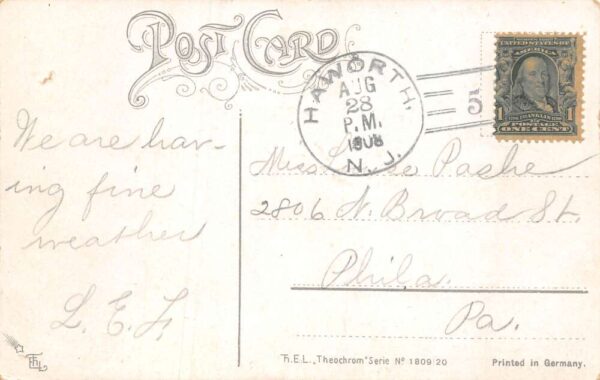 POST CARD
HAWORTH.
AUG
28
P.M.
1908
N. J.
5
UNITED STATES OF
AMERICA
1 FRANKLIN 1
POSTAGE
ONE CENT
We are hav-
ing fine
weather
L. E. F.
Miss
2806 N. Broad St.
Phila.
Pa.
Th.E.L. „Theochrom" Serie Nº 1809 20
Printed in Germany.